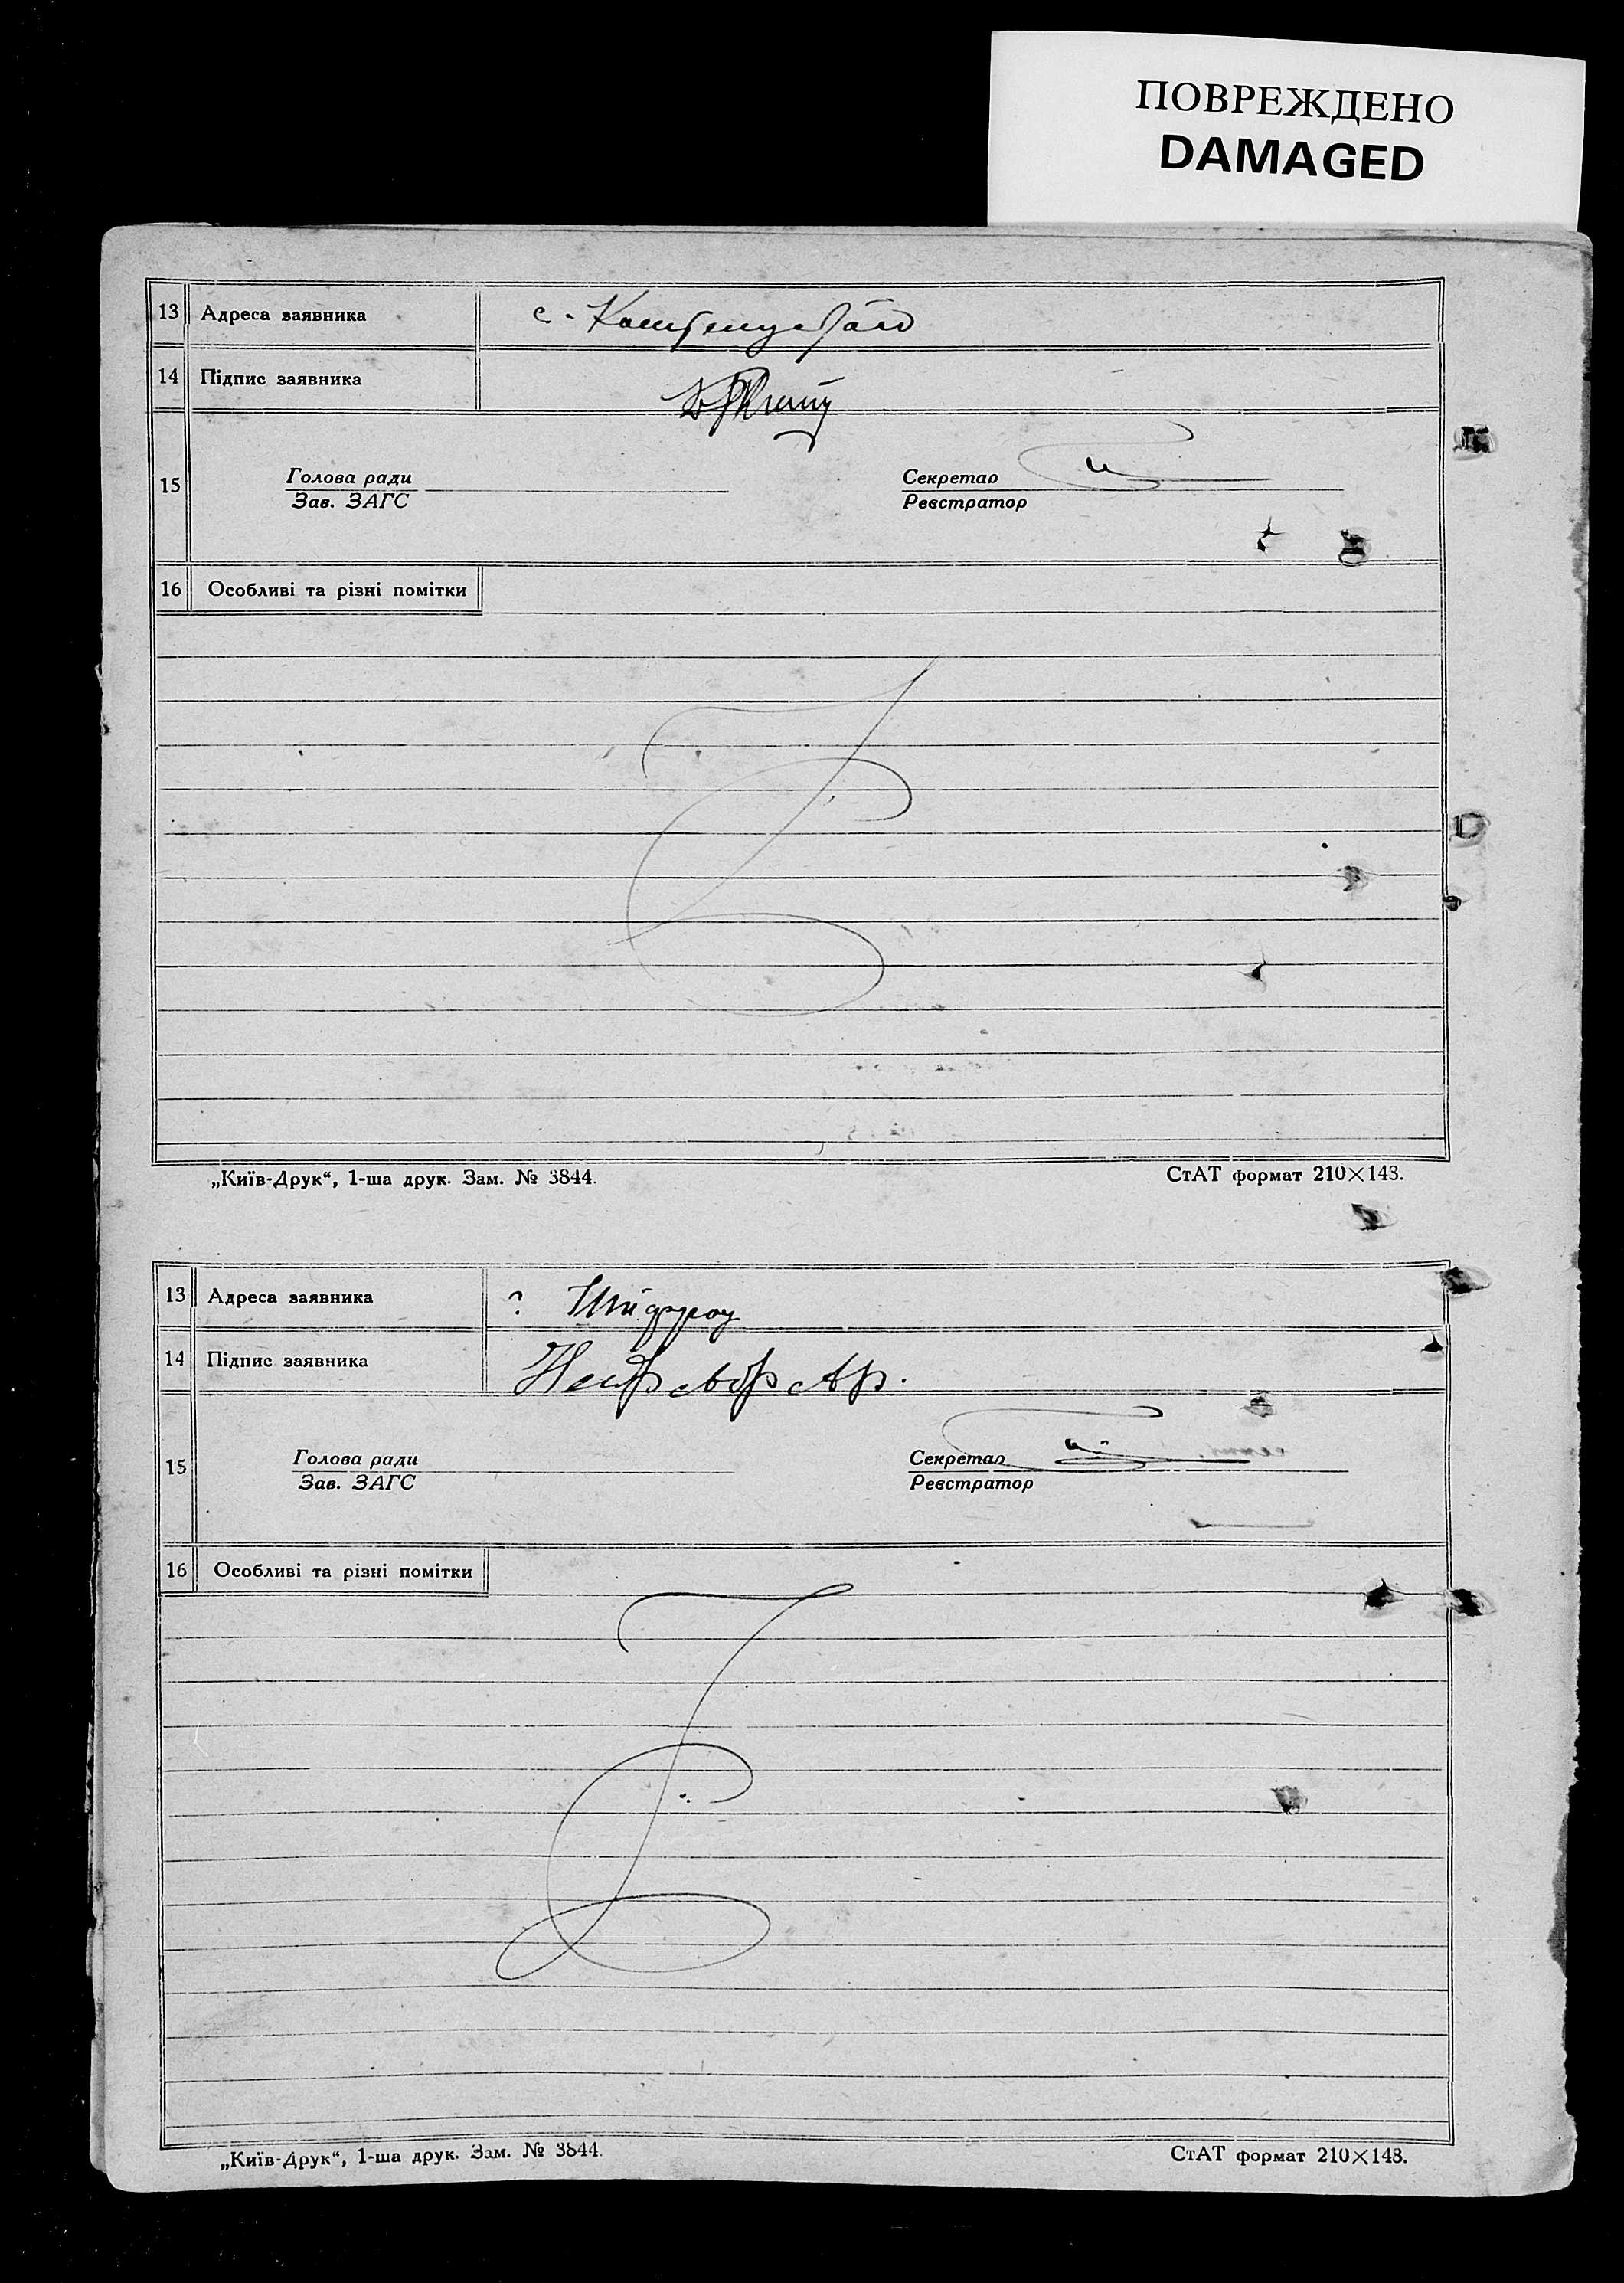 ПОВРЕЖДЕНО
DAMAGED
13 Адреса заявника с.
14 Підпис заявника
15 Голова ради Секретар
Зав. ЗАГС Реєстратор
16 Особливі та різні помітки
„Київ-Друк“, 1-ша друк. Зам. № 3844. СтАТ формат 210×148.
13 Адреса заявника
14 Підпис заявника
15 Голова ради Секретар
Зав. ЗАГС Реєстратор
16 Особливі та різні помітки
„Київ-Друк“, 1-ша друк. Зам. № 3844. СтАТ формат 210×148.